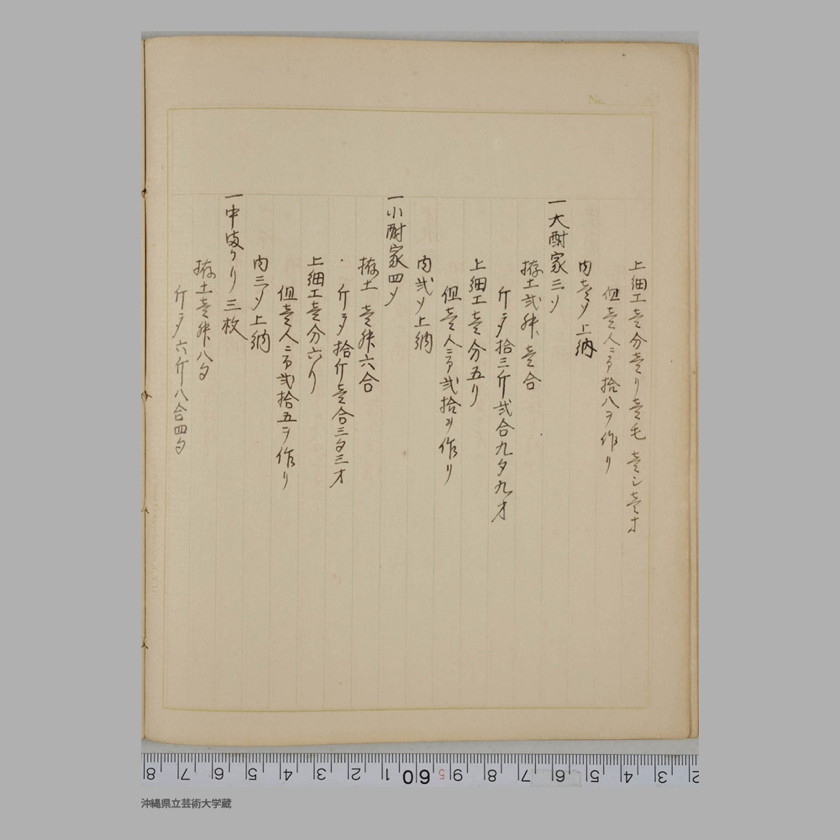 上細工壱分壱リ壱毛 壱シ壱才
但壱人ニ而拾八ヲ作リ
内壱ツ上納
一大酎家三ツ
拵土弐舛壱合
斤ヲ拾三斤弐合九夕九才
上細工壱分五リ
但壱人ニ而弐拾ヲ作リ
内弐ツ上納
一小酎家四ツ
拵土壱舛六合
斤ヲ拾斤壱合三夕三才
上細工壱分六リ
但壱人ニ而弐拾五ヲ作リ
内三ツ上納
一中 リ三枚
拵土壱舛八夕
斤ヲ六斤八合四夕
No.
8 7 6 5 4 3 2 1 60 9 8 7 6 5 4 3 2
沖縄県立芸術大学蔵